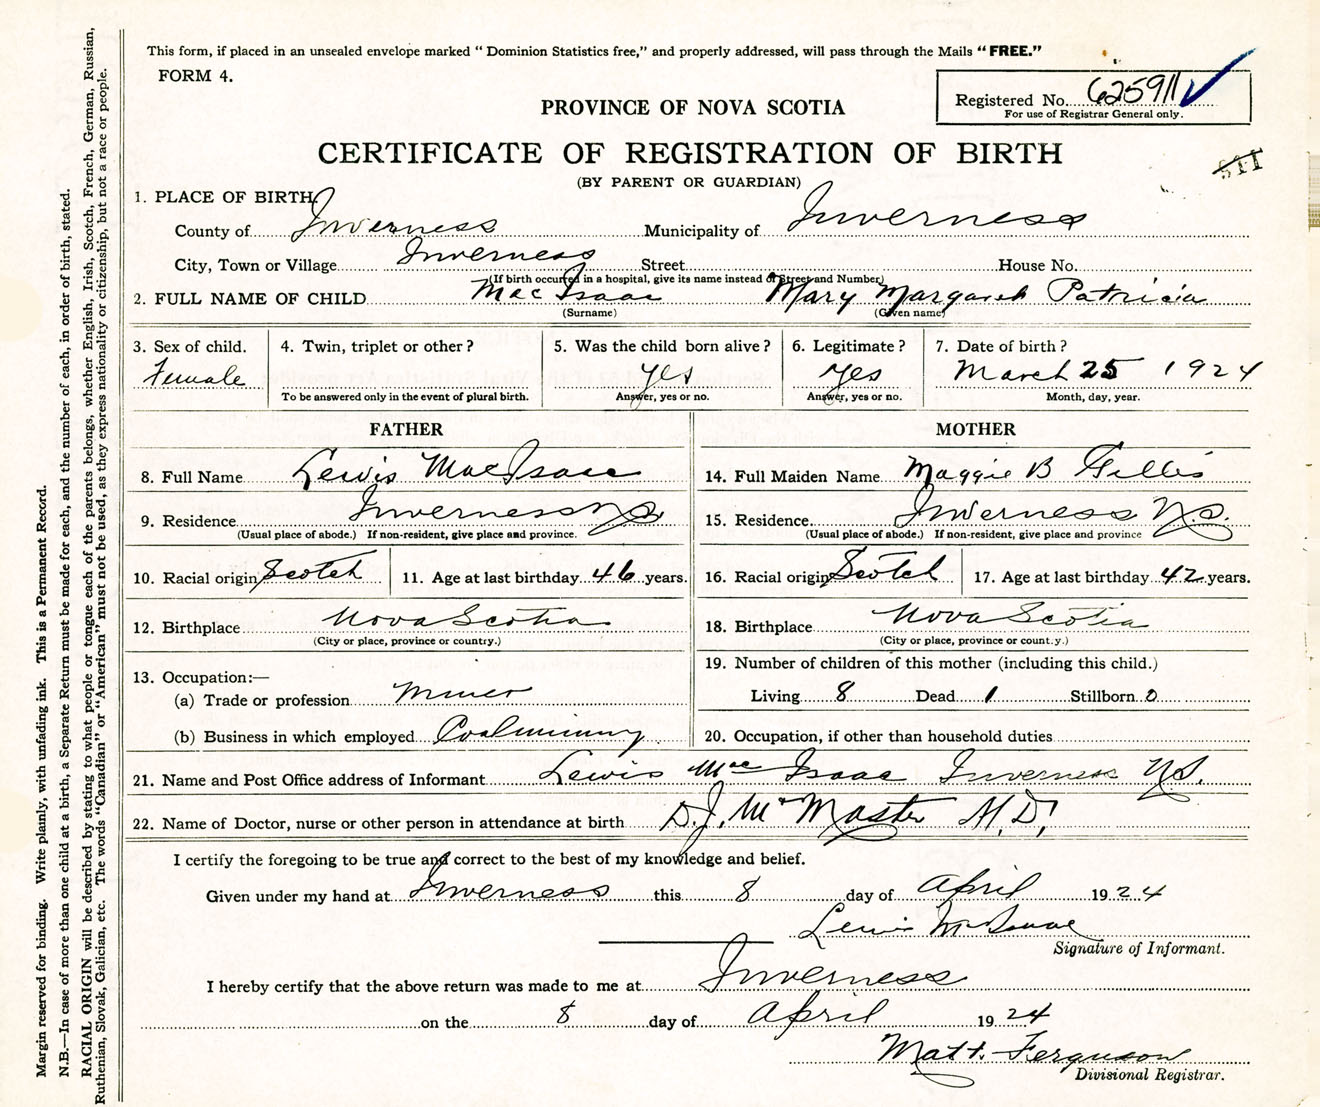 This form, if placed in an unsealed envelope marked "Dominion Statistics free," and properly addressed, will pass through the Mails "FREE."
FORM 4.
Registered No. 625911
For use of Registrar General only.
PROVINCE OF NOVA SCOTIA
CERTIFICATE OF REGISTRATION OF BIRTH
(BY PARENT OR GUARDIAN)
1. PLACE OF BIRTH
County of Inverness Municipality of Inverness
City, Town or Village Inverness Street House No.
(If birth occurred in a hospital, give its name instead of Street and Number)
2. FULL NAME OF CHILD Mac Isaac Mary Margaret Patricia
(Surname) (Given name)
3. Sex of child. 4. Twin, triplet or other? 5. Was the child born alive? 6. Legitimate? 7. Date of birth?
Female yes yes March 25 1924
To be answered only in the event of plural birth. Answer, yes or no. Answer, yes or no. Month, day, year.
FATHER MOTHER
8. Full Name Lewis MacIsaac 14. Full Maiden Name Maggie B Gillis
9. Residence Inverness NS 15. Residence. Inverness N.S.
(Usual place of abode.) If non-resident, give place and province. (Usual place of abode.) If non-resident, give place and province
10. Racial origin Scotch 11. Age at last birthday 46 years. 16. Racial origin Scotch 17. Age at last birthday 42 years.
12. Birthplace Nova Scotia 18. Birthplace Nova Scotia
(City or place, province or country.) (City or place, province or count.y.)
13. Occupation:— 19. Number of children of this mother (including this child.)
(a) Trade or profession Miner Living 8 Dead 1 Stillborn 0
(b) Business in which employed Coalmining 20. Occupation, if other than household duties
21. Name and Post Office address of Informant Lewis Mac Isaac Inverness N.S.
22. Name of Doctor, nurse or other person in attendance at birth D.J. McMaster M.D.
I certify the foregoing to be true and correct to the best of my knowledge and belief.
Given under my hand at Inverness this 8 day of April 1924
Lewis McIsaac
Signature of Informant.
I hereby certify that the above return was made to me at Inverness
on the 8 day of April 1924
Matt. Ferguson
Divisional Registrar.
Margin reserved for binding. Write plainly, with unfading ink. This is a Permanent Record.
N.B.—In case of more than one child at a birth, a Separate Return must be made for each, and the number of each, in order of birth, stated.
RACIAL ORIGIN will be described by stating to what people or tongue each of the parents belongs, whether English, Irish, Scotch, French, German, Russian,
Ruthenian, Slovak, Galician, etc. The words "Canadian" or "American" must not be used, as they express nationality or citizenship, but not a race or people.